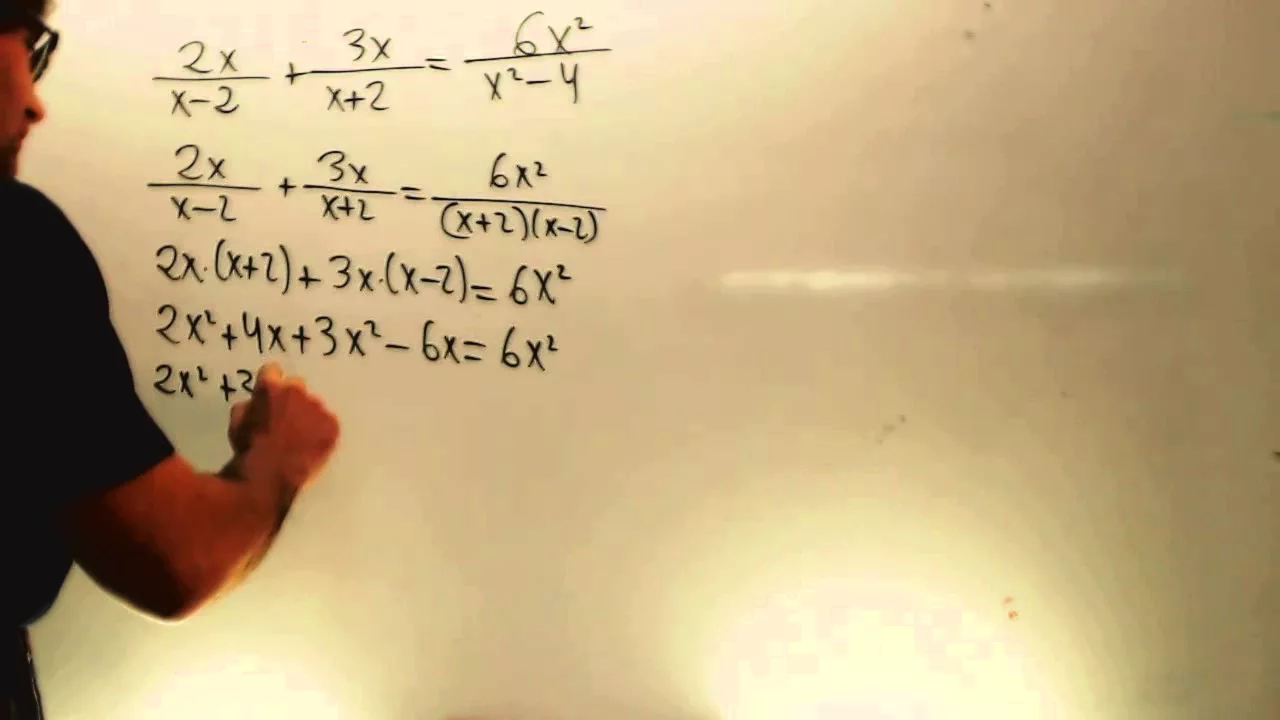 2x/(x-2) + 3x/(x+2) = 6x²/(x²-4)
2x/(x-2) + 3x/(x+2) = 6x²/((x+2)(x-2))
2x·(x+2)+3x·(x-2)=6x²
2x²+4x+3x²-6x=6x²
2x²+3